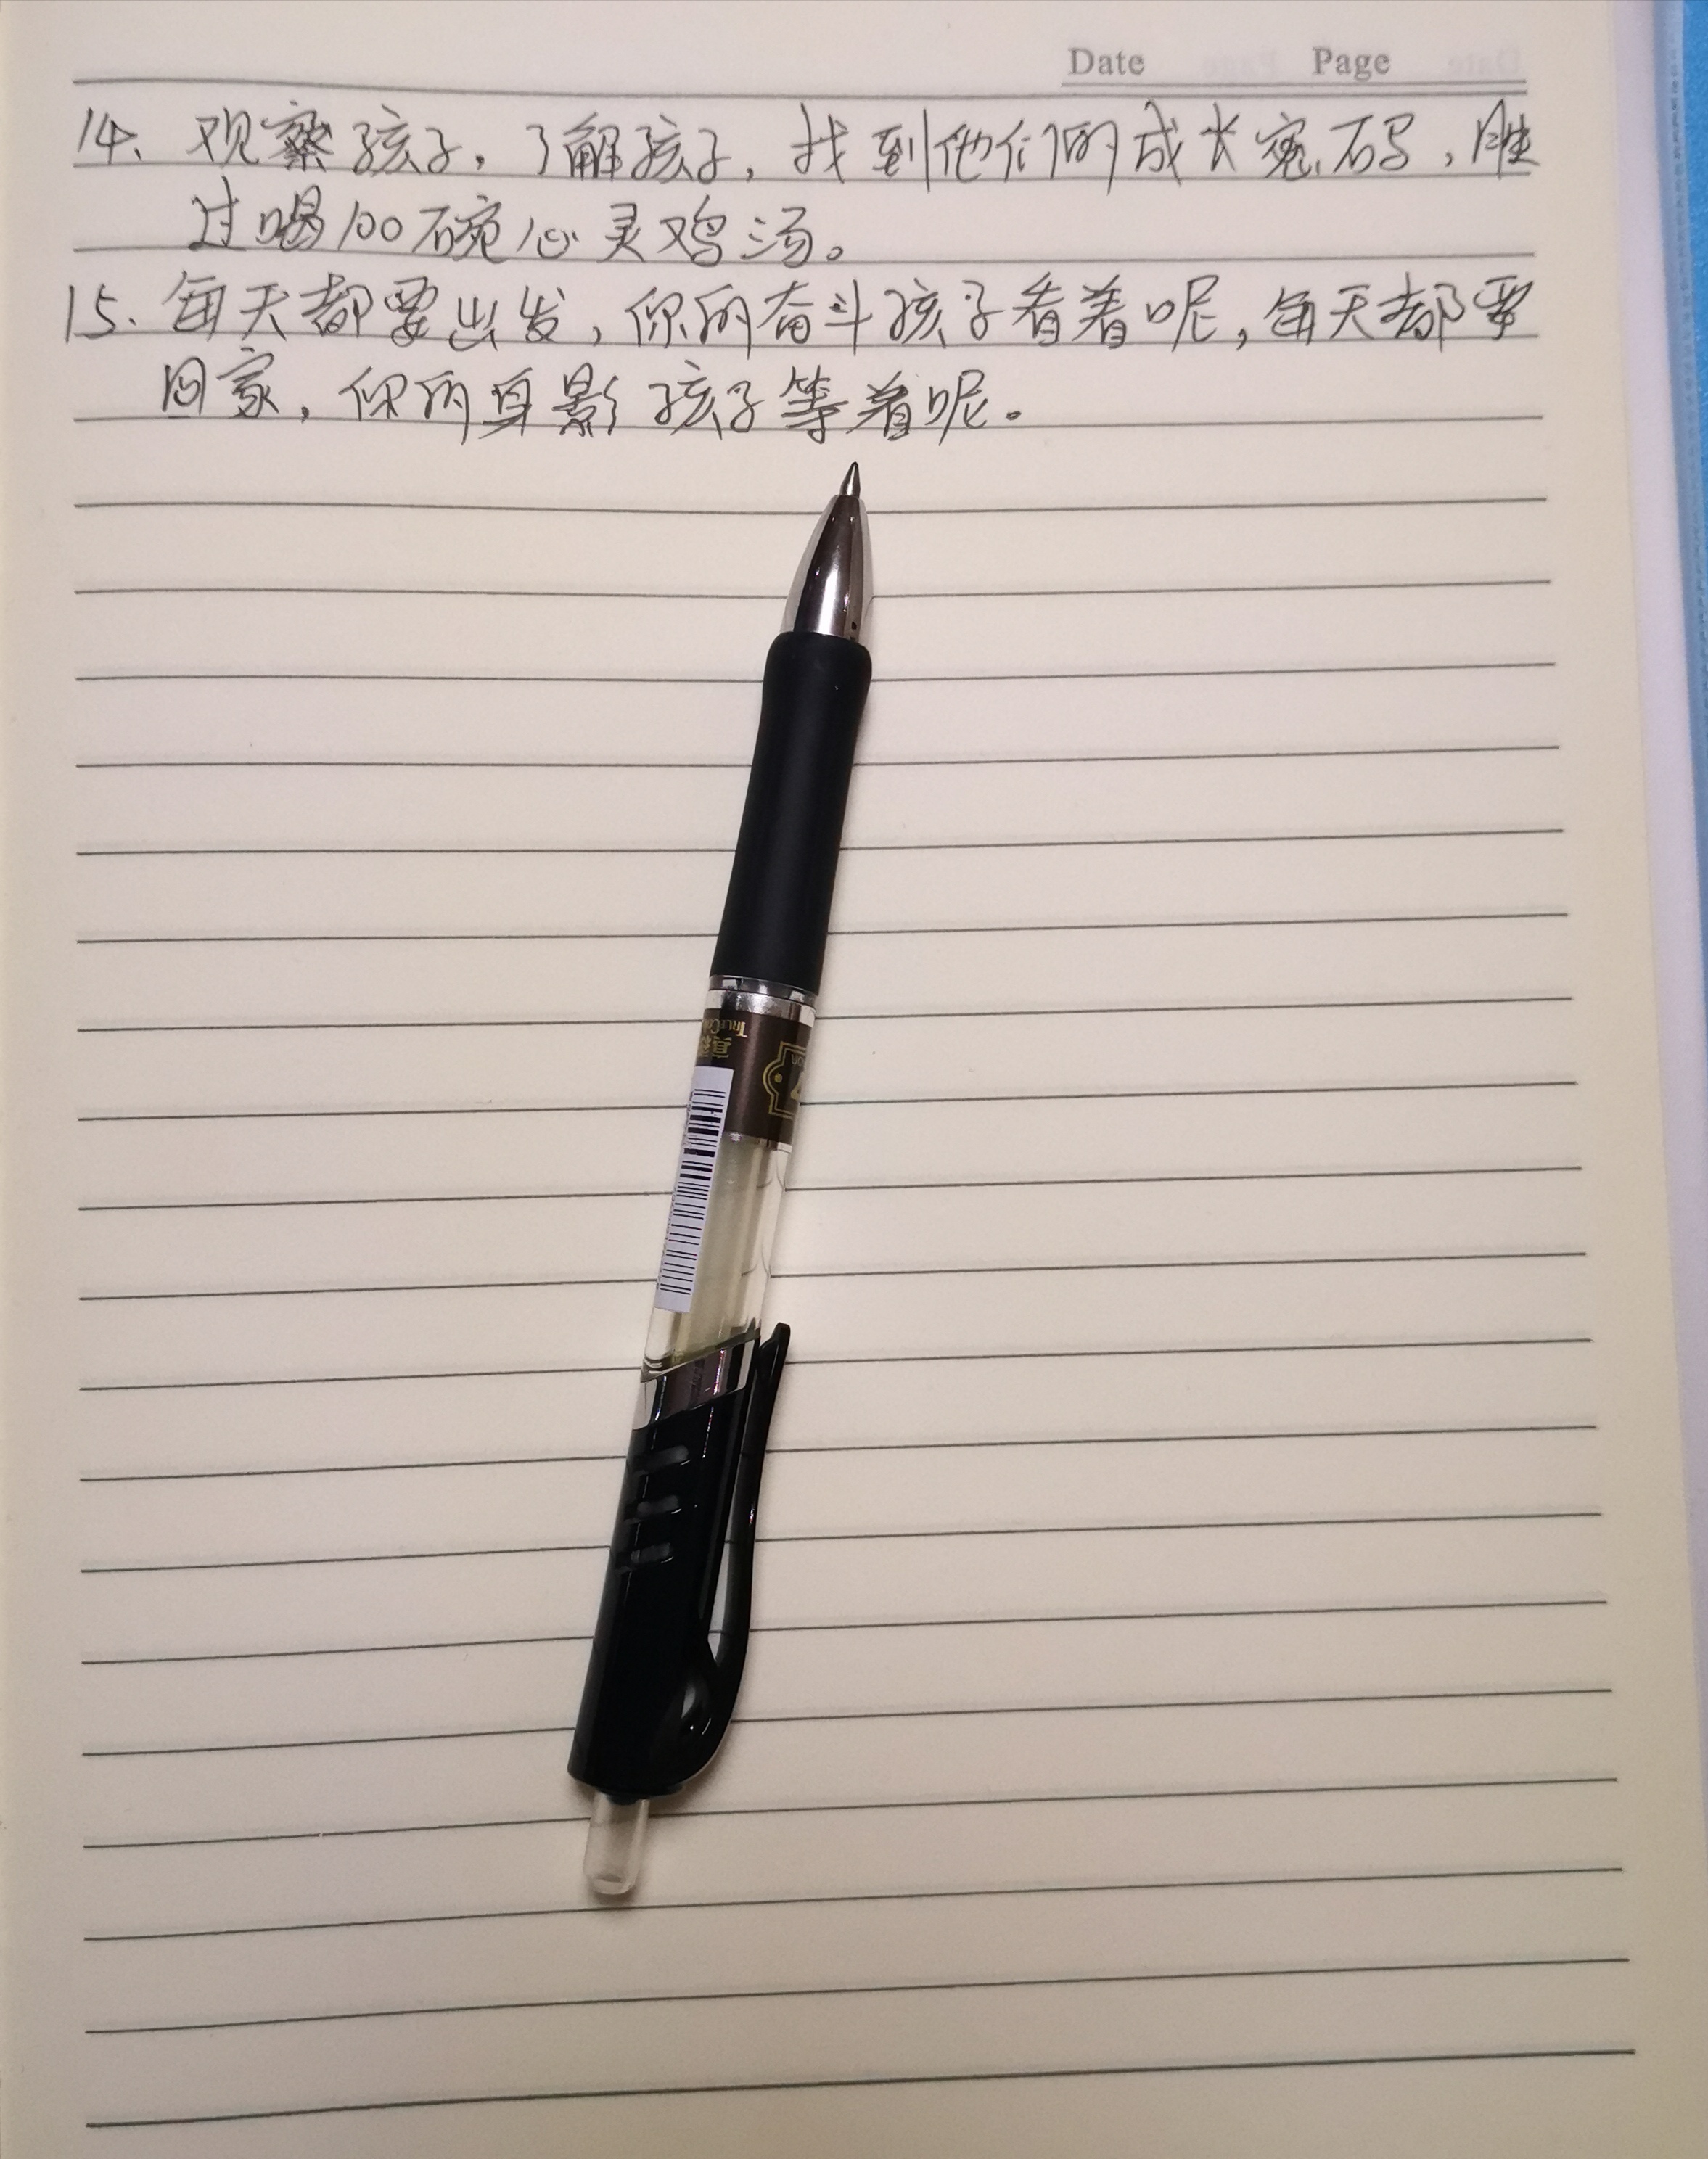 Date Page
14、观察孩子，了解孩子，找到他们的成长密码，胜
过喝100碗心灵鸡汤。
15、每天都要出发，你的奋斗孩子看着呢，每天都要
回家，你的身影孩子等着呢。